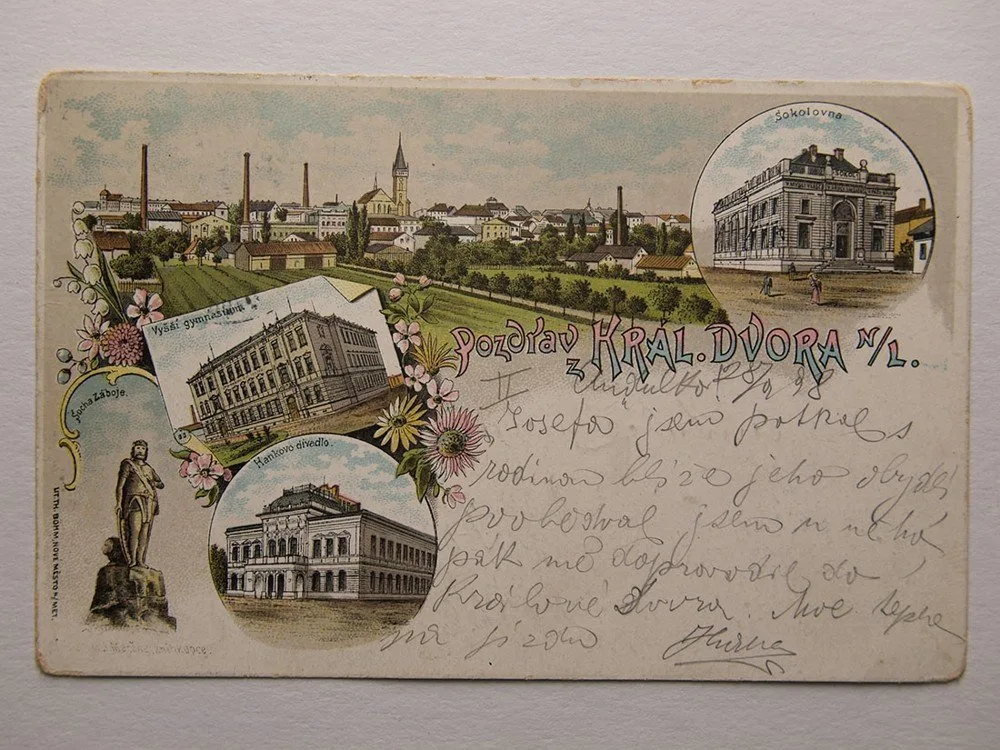 Sokolovna
Vyšší gymnasium
Pozdrav
z KRÁL. DVORA N/L.
Socha Záboje.
Hankovo divadlo.
LITH. BÖHM, NOVÉ MĚSTO N/MET.
knihkupec.
II
Josefa jsem potkal s
rodinou blíže jeho
poobědval jsem u něho
pak mě doprovodil do
Králové dvora. Moc
na jízdu